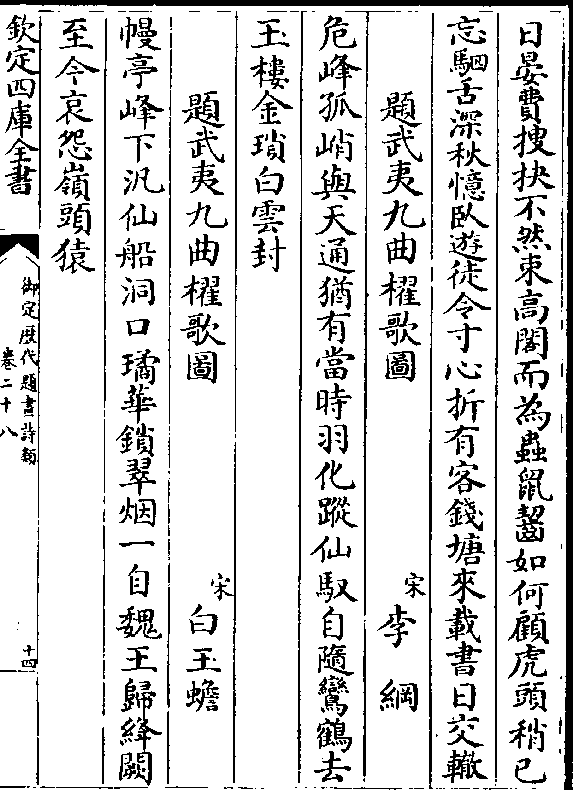 日晏費搜抉不然束高閣而為蟲鼠齧如何顧虎頭稍已
忘駟舌深秋憶臥遊徒令寸心折有客錢塘來載書日交轍
題武夷九曲櫂歌圖
宋李綱
危峰孤峭與天通猶有當時羽化蹤仙馭自隨鸞鶴去
玉樓金瑣白雲封
題武夷九曲櫂歌圖
宋白玉蟾
幔亭峰下汎仙船洞口璚華鎖翠烟一自魏王歸絳闕
至今哀怨嶺頭猿
欽定四庫全書
御定歴代題畫詩類
卷二十八
十四